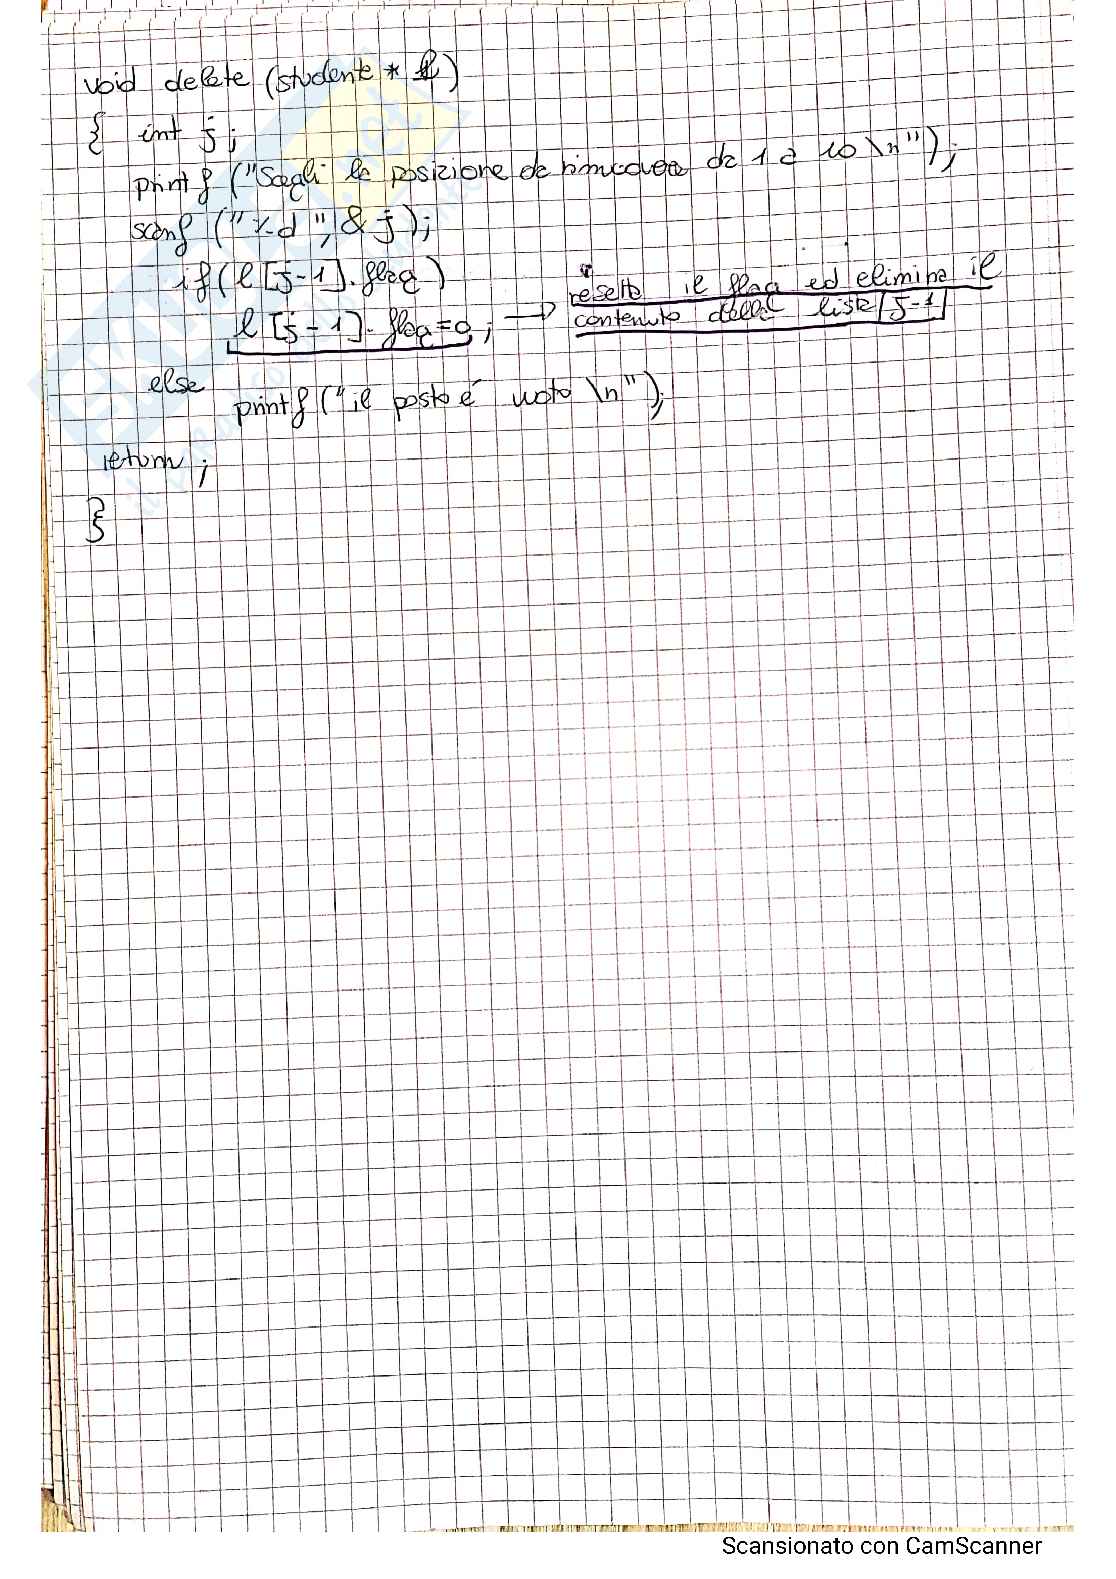 void delete (studente * l)
{ int j;
printf ("Scegli la posizione da rimuovere da 1 a 10 \n");
scanf ("%d", & j);
if(l[j-1].flag)
l[j-1].flag=0; → resetta il flag ed elimina il
contenuto della lista[j-1]
else
printf ("il posto é vuoto \n");
return ;
}
Scansionato con CamScanner